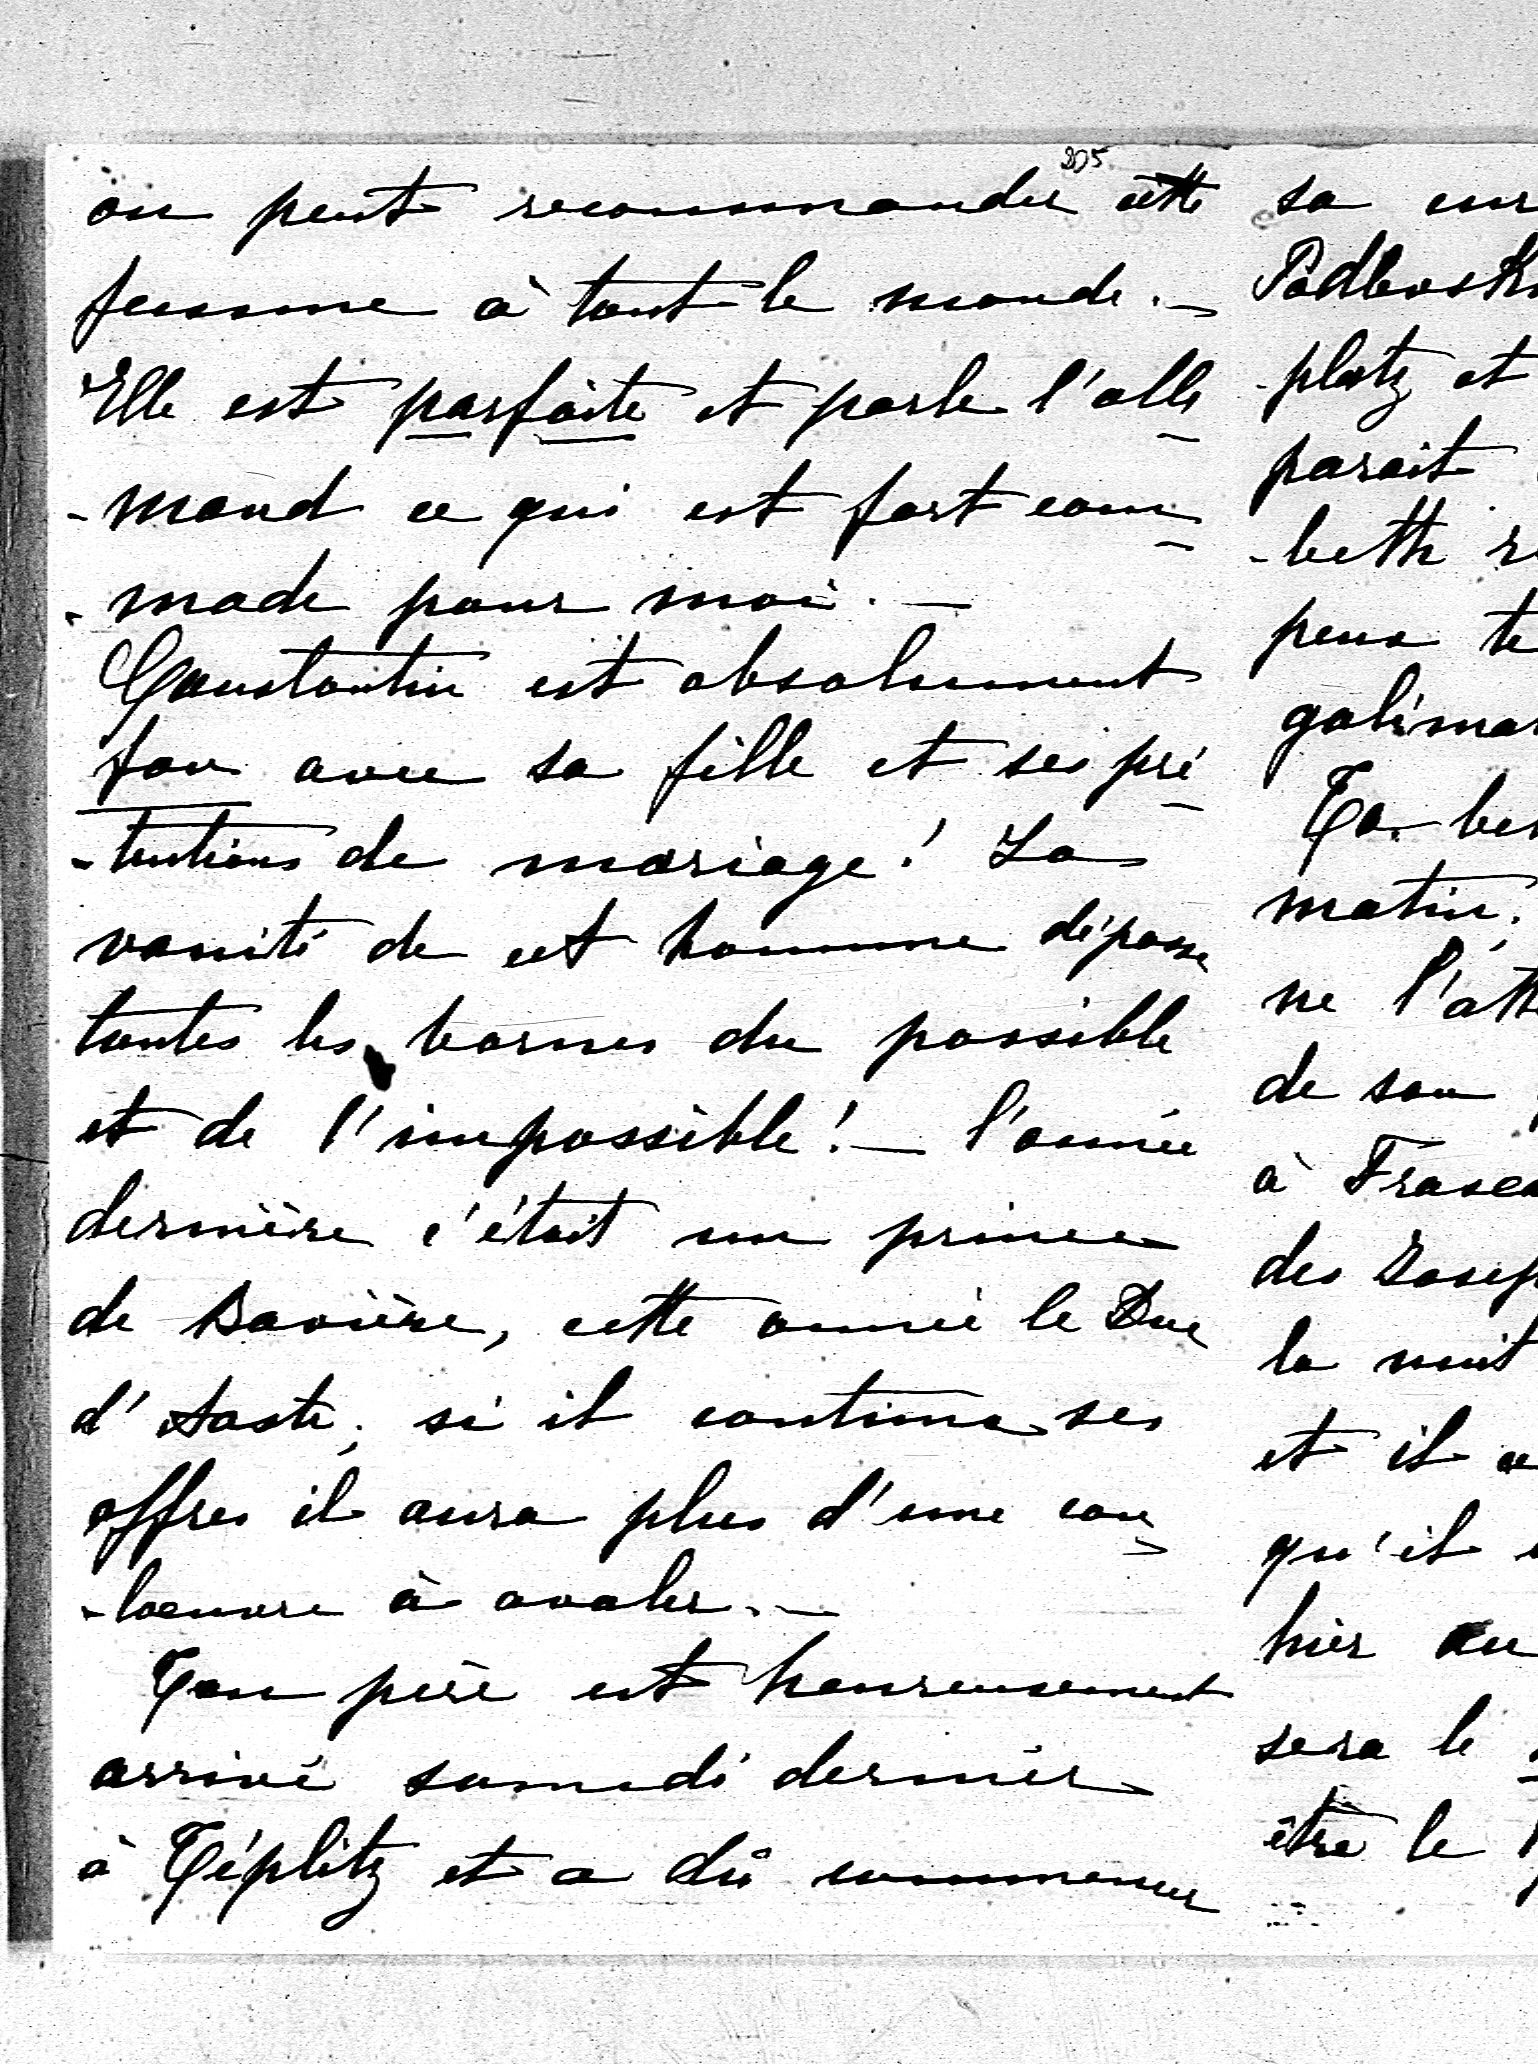 205
on peut recommander cette
femme à tout le monde. —
Elle est parfaite et parle l'alle
-mand ce qui est fort com
-mode pour moi. —
Constantin est absolument
fou avec sa fille et ses pré
-tentions de mariage! La
vanité de cet homme dépasse
toutes les bornes du possible
et de l'impossible! — l'année
dernière c'était un prince
de Bavière, cette année le Duc
d'Aoste; si il continue ses
offres il aura plus d'une cou
-loeuvre à avaler. —
Ton père est heureusement
arrivé samedi dernier
à Téplitz et a dû commencer
sa cur
-plitz et
parait
-beth
peux te
galimat
Ta
matin.
ne l'att
de son
à Frasca
des Josep
la nuit
et il
qu'il
hier au
sera le
être le